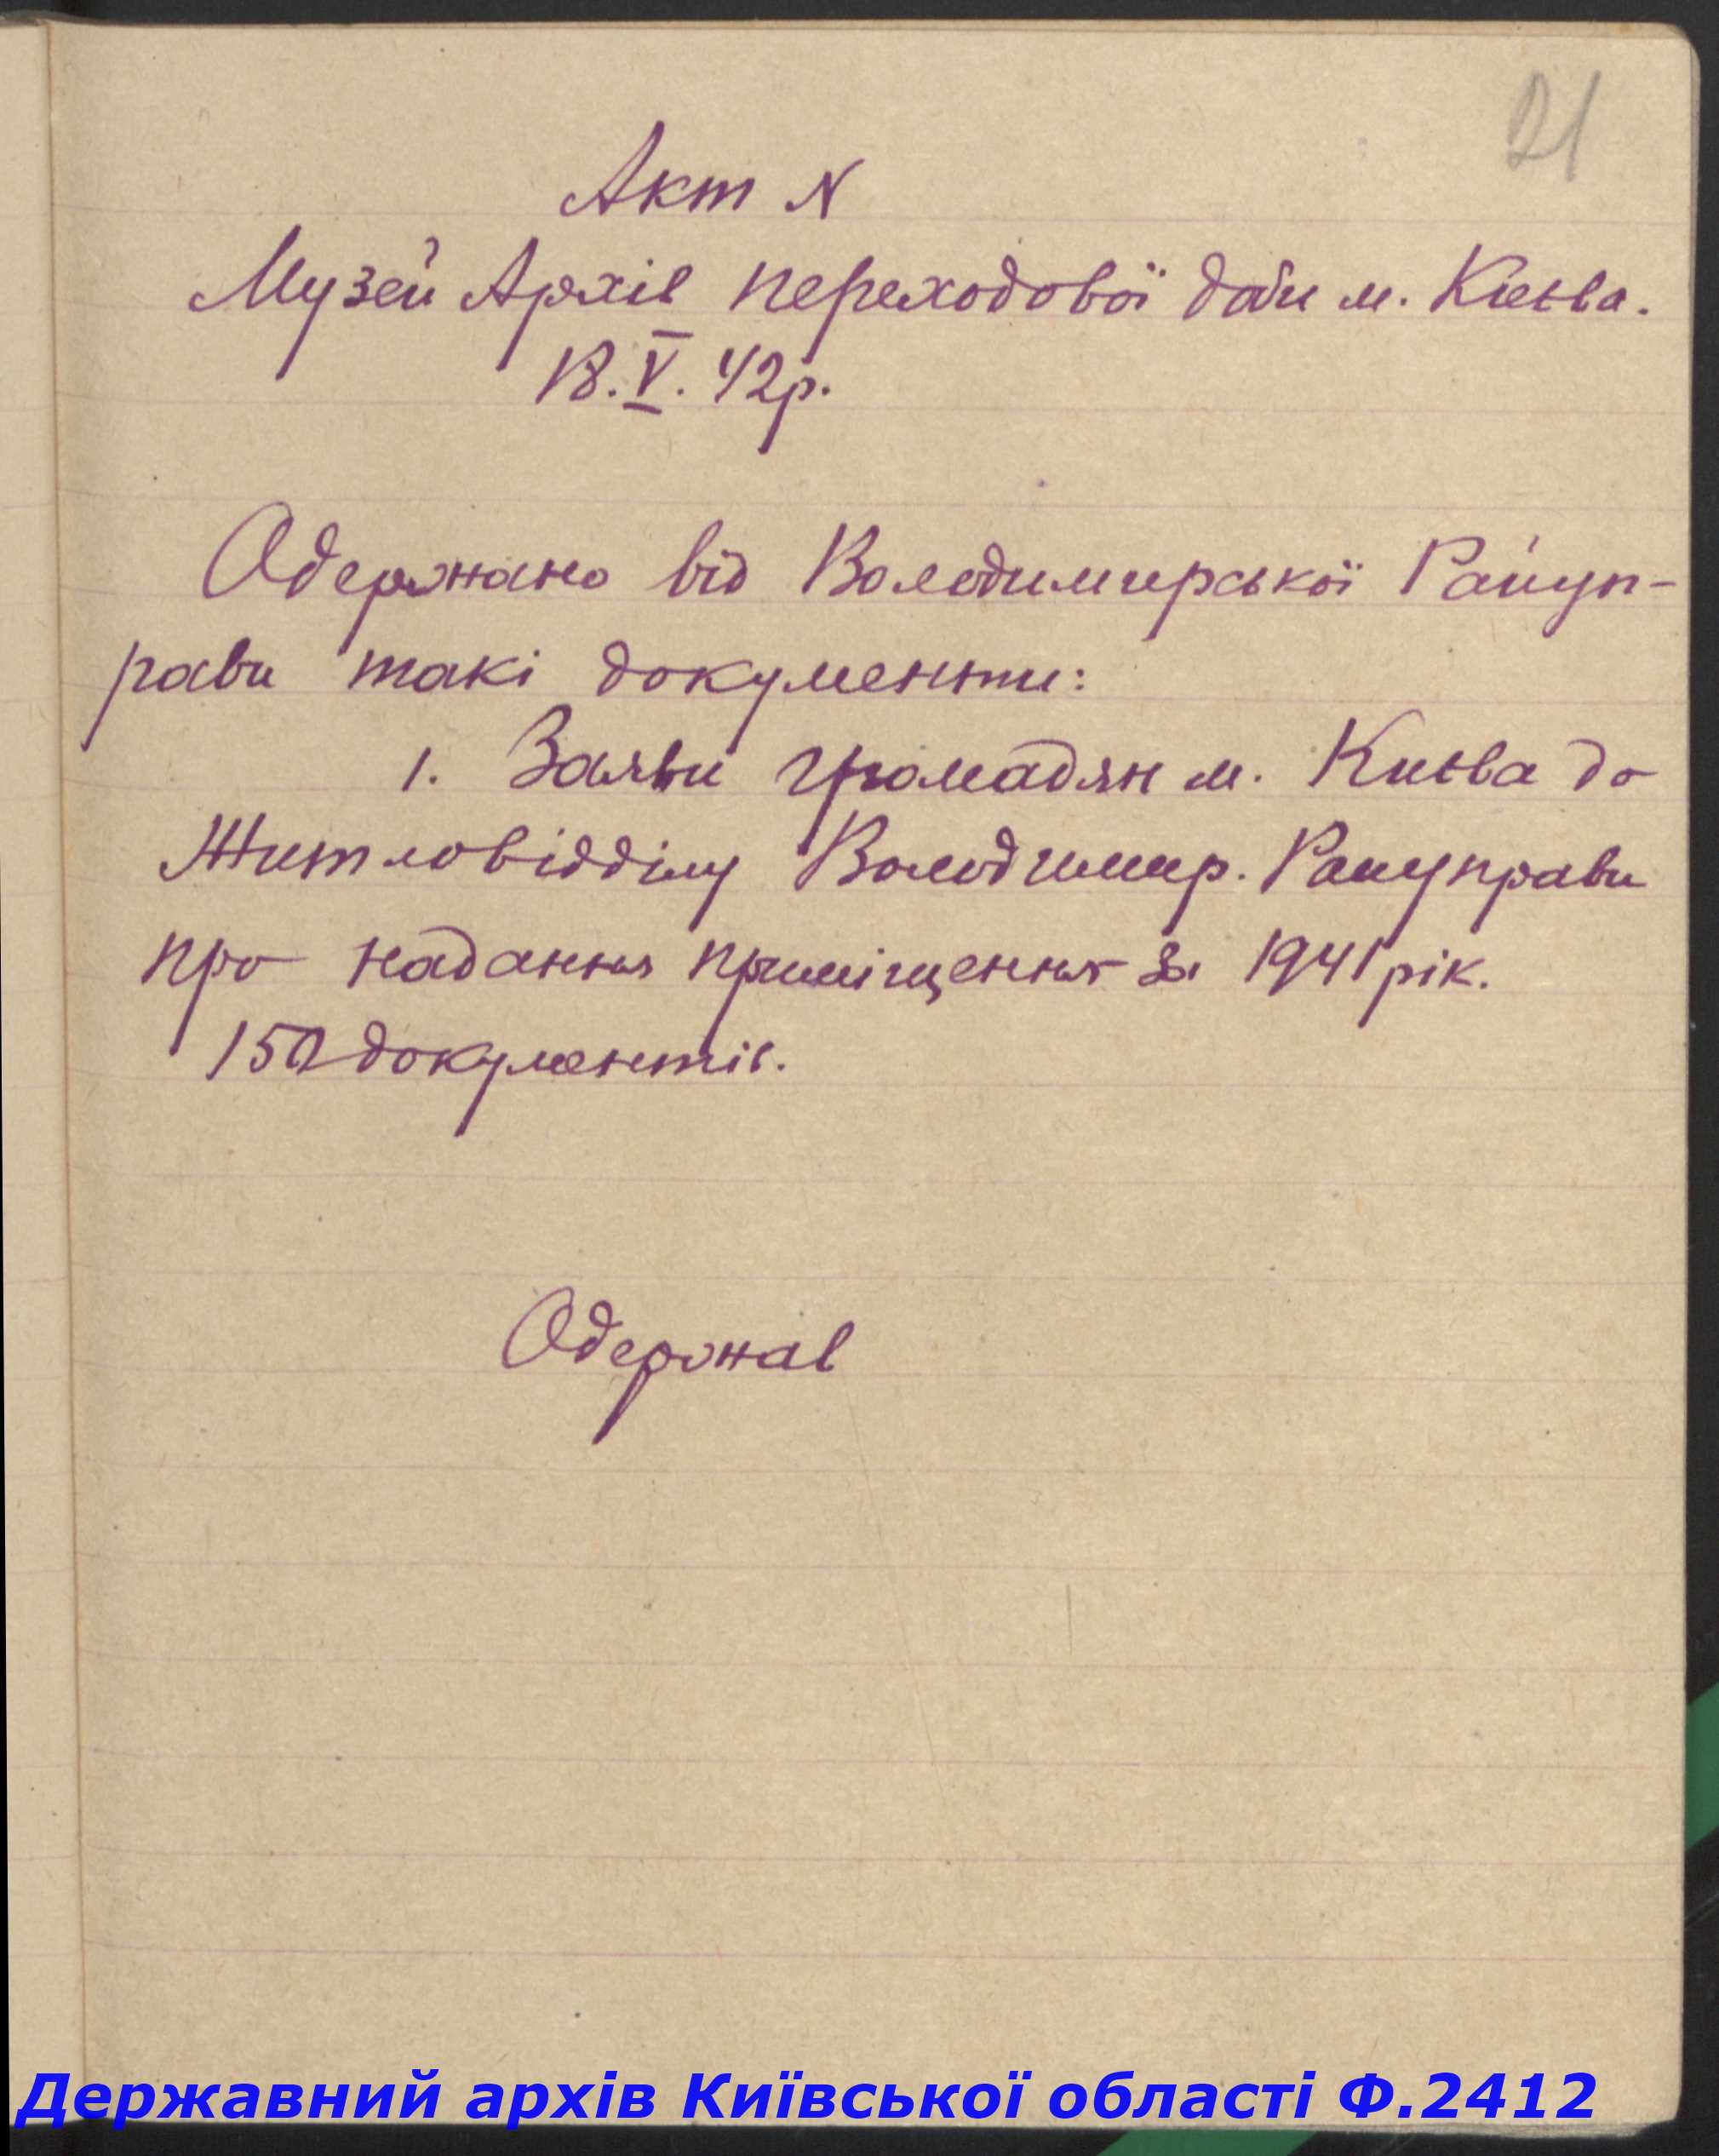 21
Акт N
Музей Архів переходової доби м. Києва.
18.V.42р.
Одержано від Володимирської Райуп-
рави такі документи:
1. Заяви громадян м. Києва до
Житловідділу Володимир. Райуправи
про надання приміщення за 1941 рік.
150 документів.
Одержав
Державний архів Київської області Ф.2412